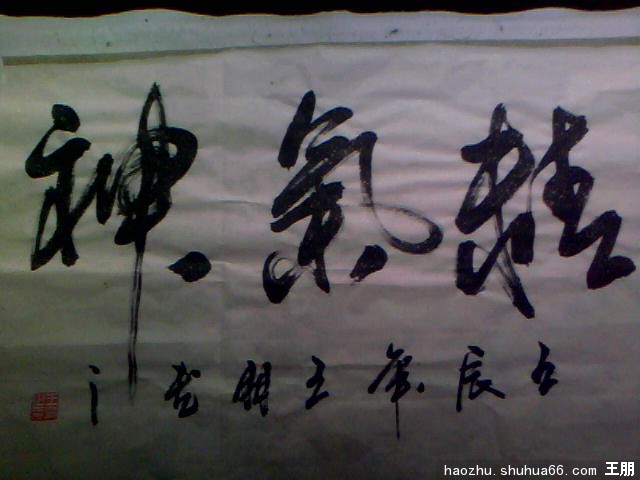 精氣神
壬辰年王朋书
haozhu.shuhua66.com 王朋